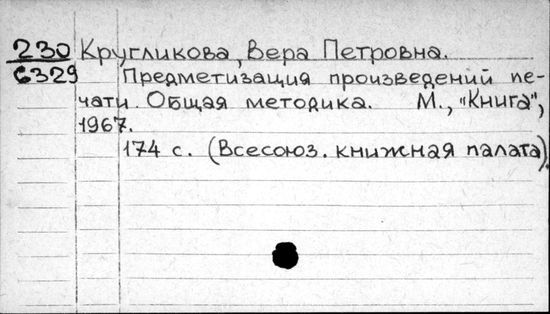 230 Кругликова, Вера Петровна.
6329 Предметизация произведений пе-
чати. Общая методика. М., "Книга",
1967.
174 с. (Всесоюз. книжная палата).